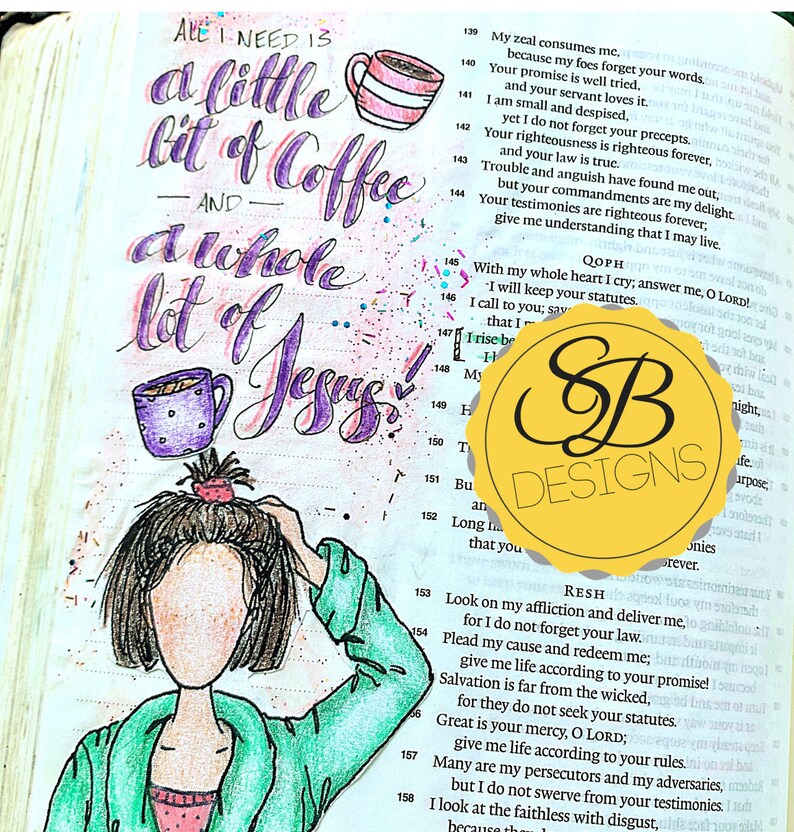 ALL I NEED IS
a little
bit of Coffee
— AND —
a whole
lot of
Jesus!
139 My zeal consumes me,
because my foes forget your words.
140 Your promise is well tried,
and your servant loves it.
141 I am small and despised,
yet I do not forget your precepts.
142 Your righteousness is righteous forever,
and your law is true.
143 Trouble and anguish have found me out,
but your commandments are my delight.
144 Your testimonies are righteous forever;
give me understanding that I may live.
QOPH
145 With my whole heart I cry; answer me, O LORD!
I will keep your statutes.
146 I call to you;
that I
147 I rise
148 My
night,
149
150
life.
151
152 Long
that you
RESH
153 Look on my affliction and deliver me,
for I do not forget your law.
154 Plead my cause and redeem me;
give me life according to your promise!
Salvation is far from the wicked,
for they do not seek your statutes.
Great is your mercy, O LORD;
give me life according to your rules.
157 Many are my persecutors and my adversaries,
but I do not swerve from your testimonies.
158 I look at the faithless with disgust,
because
SB
DESIGNS